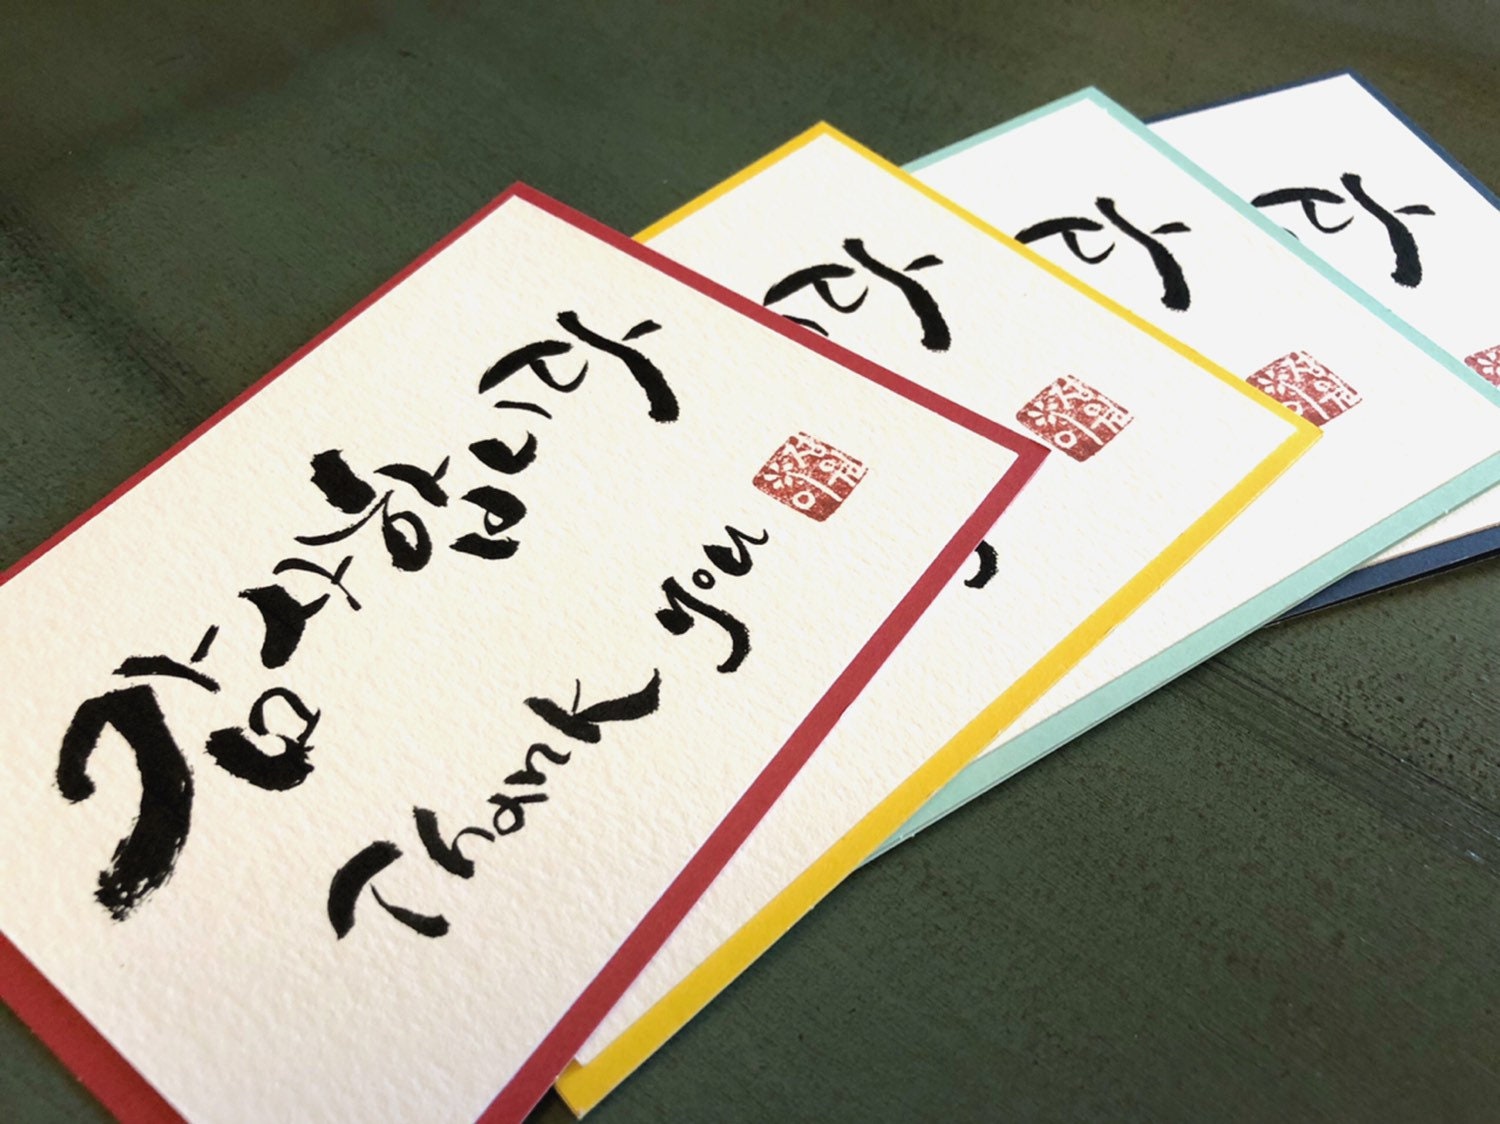 감사합니다
Thank you
다
다
다